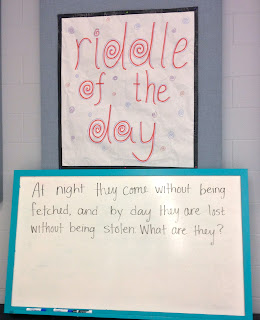 riddle
of the
day
At night they come without being
fetched, and by day they are lost
without being stolen. What are they?